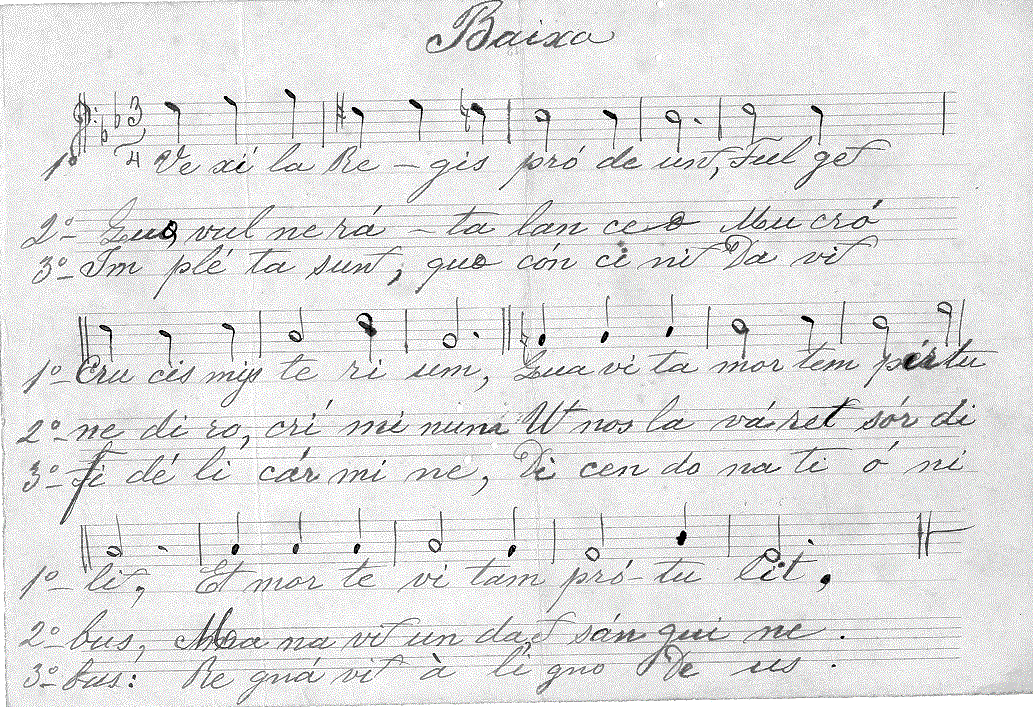 Baixa
3
4
1º Ve xí la Re - gis pró de unt, Ful get
2º - Quo, vul ne rá - ta lan ceo Mu cró
3º - Im plé ta sunt, quo cón ci nit Da vit
1º - Cru cis mys te ri um, Qua vi ta mor tem pértu
2º - ne di ro, crí mi num Ut nos la váret sór di
3º - Fi dé li cár mi ne, Di cen do na ti ó ni
1º - lit, Et mor te vi tam pró - tu lit,
2º - bus, Ma na vit un da et sán gui ne .
3º - bus: Re gná vit à li gno De us .